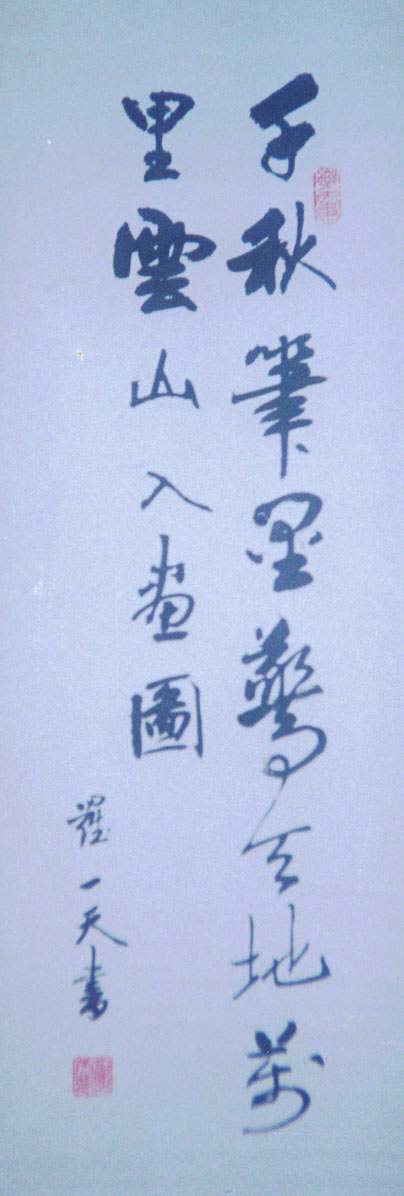 千秋筆墨驚天地萬
里雲山入畫圖
一天書